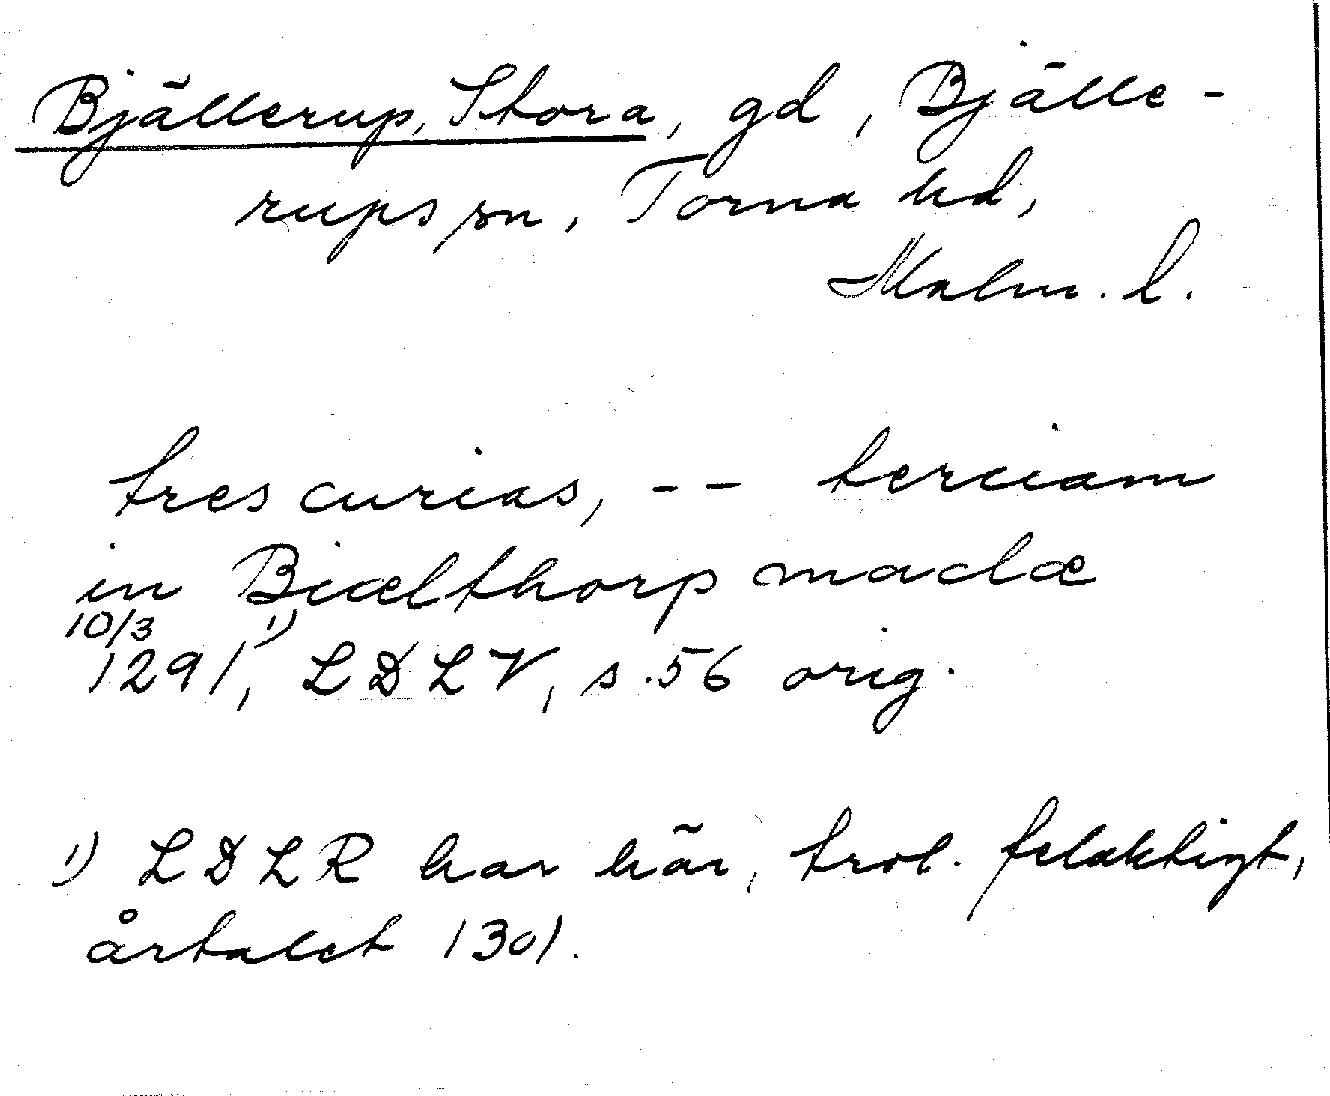 Bjällerup, Stora, gd, Bjälle-
rups sn, Torna hd,
Malm. l.
tres curias, -- terciam
in Biælthorp maclæ
10/3
1291,¹⁾ LDLV, s. 56 orig.
1) LDLR har här, trol. felaktigt,
årtalet 1301.